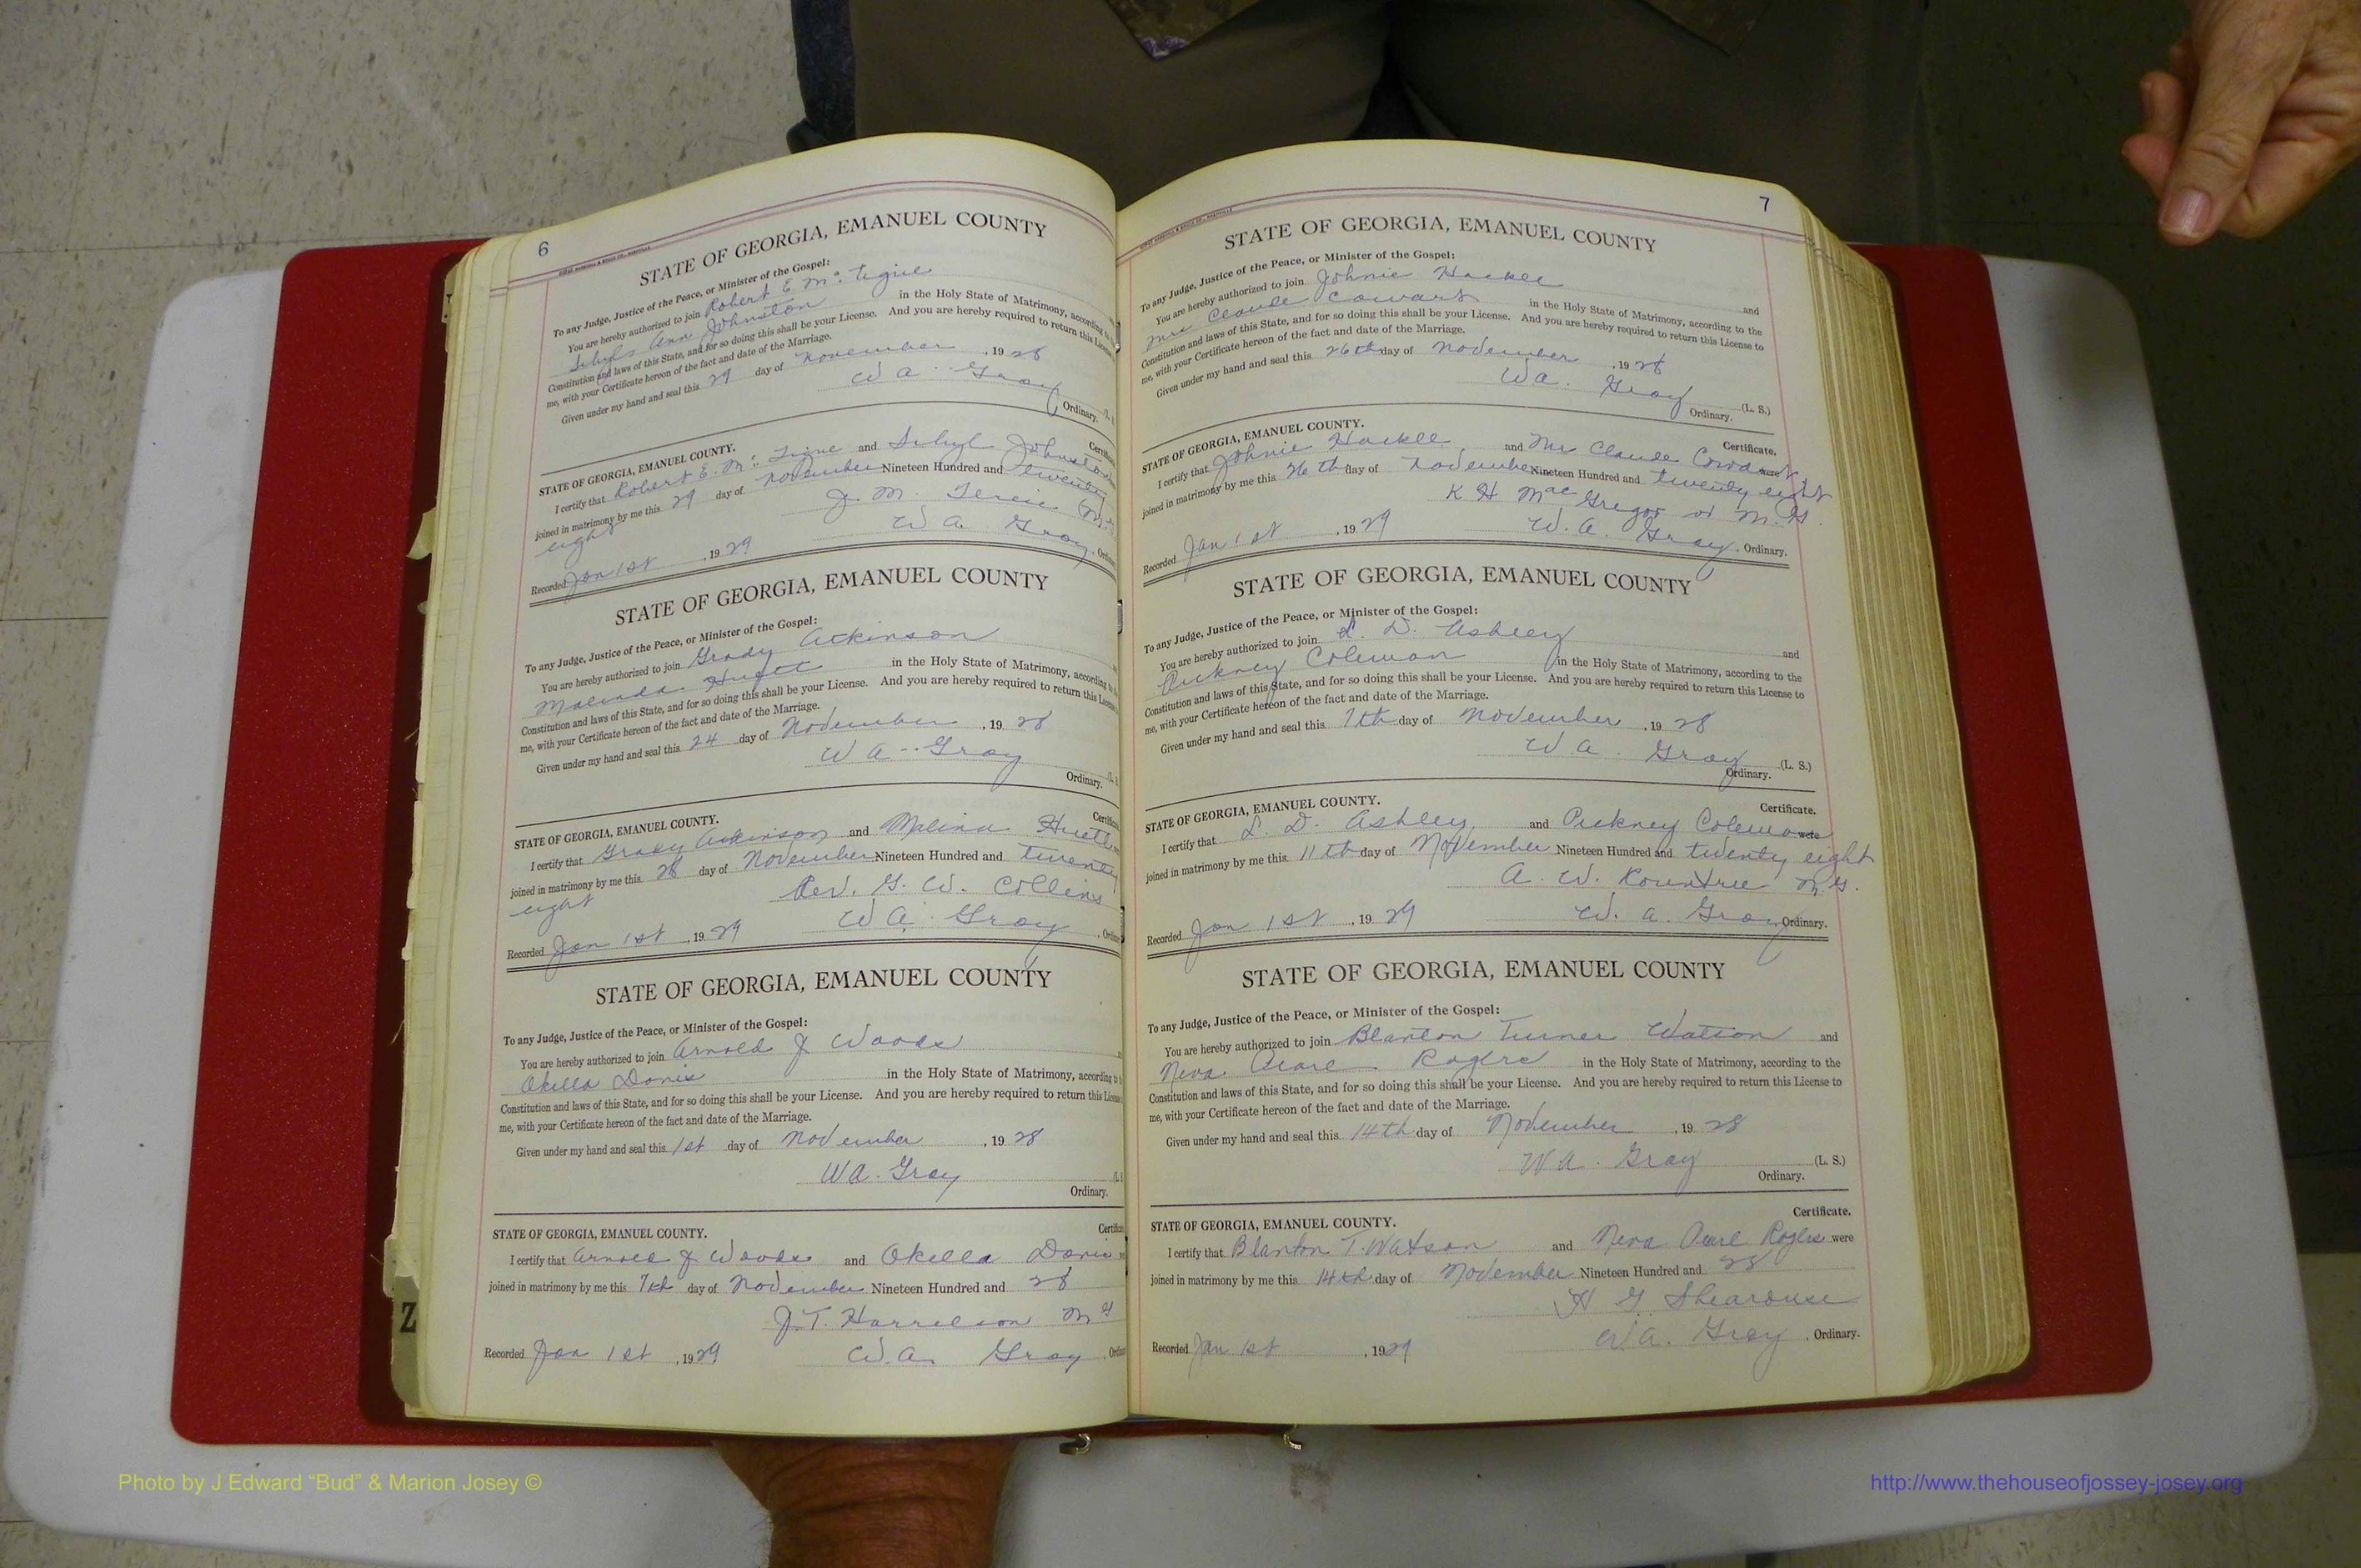 6
STATE OF GEORGIA, EMANUEL COUNTY
To any Judge, Justice of the Peace, or Minister of the Gospel:
You are hereby authorized to join Robert E. Mc Tigue
Sibyl Ann Johnston in the Holy State of Matrimony, according to
Constitution and laws of this State, and for so doing this shall be your License. And you are hereby required to return this License
me, with your Certificate hereon of the fact and date of the Marriage.
Given under my hand and seal this 29 day of November, 1928
W A. Gray
Ordinary.
STATE OF GEORGIA, EMANUEL COUNTY.
I certify that Robert E. Mc Tigue and Sibyl Johnston
joined in matrimony by me this 29 day of November Nineteen Hundred and twenty
eight
J. M.
W A. Gray
Recorded Jan 1st, 1929
STATE OF GEORGIA, EMANUEL COUNTY
To any Judge, Justice of the Peace, or Minister of the Gospel:
You are hereby authorized to join Grady Atkinson
Malinda in the Holy State of Matrimony, according
Constitution and laws of this State, and for so doing this shall be your License. And you are hereby required to return this License
me, with your Certificate hereon of the fact and date of the Marriage.
Given under my hand and seal this 24 day of November, 1928
W A. Gray
Ordinary.
STATE OF GEORGIA, EMANUEL COUNTY.
I certify that Grady Atkinson and Malina
joined in matrimony by me this 28 day of November Nineteen Hundred and twenty
eight
Rev. G. W. Collins
W A. Gray
Recorded Jan 1st, 1929
STATE OF GEORGIA, EMANUEL COUNTY
To any Judge, Justice of the Peace, or Minister of the Gospel:
You are hereby authorized to join Arnold J Woods
Okella Davis in the Holy State of Matrimony, according to
Constitution and laws of this State, and for so doing this shall be your License. And you are hereby required to return this License
me, with your Certificate hereon of the fact and date of the Marriage.
Given under my hand and seal this 1st day of November, 1928
W A. Gray
Ordinary.
STATE OF GEORGIA, EMANUEL COUNTY.
I certify that Arnold J Woods and Okella Davis
joined in matrimony by me this 7th day of November Nineteen Hundred and 28
J. T. Harrelson M G
Recorded Jan 1st, 1929 W. A. Gray
7
STATE OF GEORGIA, EMANUEL COUNTY
To any Judge, Justice of the Peace, or Minister of the Gospel:
You are hereby authorized to join Johnie and
Mrs Claude Cowart in the Holy State of Matrimony, according to the
Constitution and laws of this State, and for so doing this shall be your License. And you are hereby required to return this License to
me, with your Certificate hereon of the fact and date of the Marriage.
Given under my hand and seal this 26th day of November, 1928
W A. Gray (L. S.)
Ordinary.
STATE OF GEORGIA, EMANUEL COUNTY. Certificate.
I certify that Johnie and Mrs Claude Cowart were
joined in matrimony by me this 26th day of November Nineteen Hundred and twenty eight
K H MacGregor M. G.
Recorded Jan 1st, 1929 W. A. Gray, Ordinary.
STATE OF GEORGIA, EMANUEL COUNTY
To any Judge, Justice of the Peace, or Minister of the Gospel:
You are hereby authorized to join L. D. Ashley and
Pickney Coleman in the Holy State of Matrimony, according to the
Constitution and laws of this State, and for so doing this shall be your License. And you are hereby required to return this License to
me, with your Certificate hereon of the fact and date of the Marriage.
Given under my hand and seal this 7th day of November, 1928
W A. Gray (L. S.)
Ordinary.
STATE OF GEORGIA, EMANUEL COUNTY. Certificate.
I certify that L. D. Ashley and Pickney Coleman were
joined in matrimony by me this 11th day of November Nineteen Hundred and twenty eight
A. W. Rountree M. G.
Recorded Jan 1st, 1929 W. A. Gray Ordinary.
STATE OF GEORGIA, EMANUEL COUNTY
To any Judge, Justice of the Peace, or Minister of the Gospel:
You are hereby authorized to join Blanton Turner Watson and
Neva Pearl Rogers in the Holy State of Matrimony, according to the
Constitution and laws of this State, and for so doing this shall be your License. And you are hereby required to return this License to
me, with your Certificate hereon of the fact and date of the Marriage.
Given under my hand and seal this 14th day of November, 1928
W A. Gray (L. S.)
Ordinary.
STATE OF GEORGIA, EMANUEL COUNTY. Certificate.
I certify that Blanton T. Watson and Neva Pearl Rogers were
joined in matrimony by me this 14th day of November Nineteen Hundred and 28
H G Shearouse
Recorded Jan 1st, 1929 W. A. Gray, Ordinary.
Z
Photo by J Edward “Bud” & Marion Josey ©
http://www.thehouseofjossey-josey.org